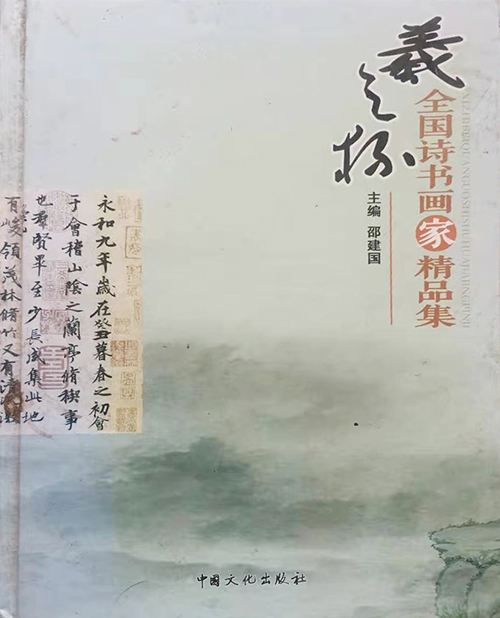 羲之杯
全国诗书画家精品集
主编 邵建国
永和九年歲在癸丑暮春之初會
于會稽山陰之蘭亭脩稧事
也羣賢畢至少長咸集此地
有峻領茂林脩竹又有清流激
中国文化出版社